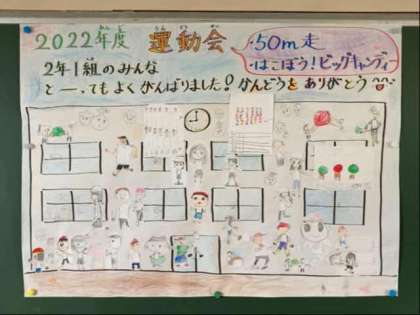 2022年度 運動会
・50m走
・はこぼう!ビッグキャンディー
2年1組のみんな
と―ってもよくがんばりました!かんどうをありがとう